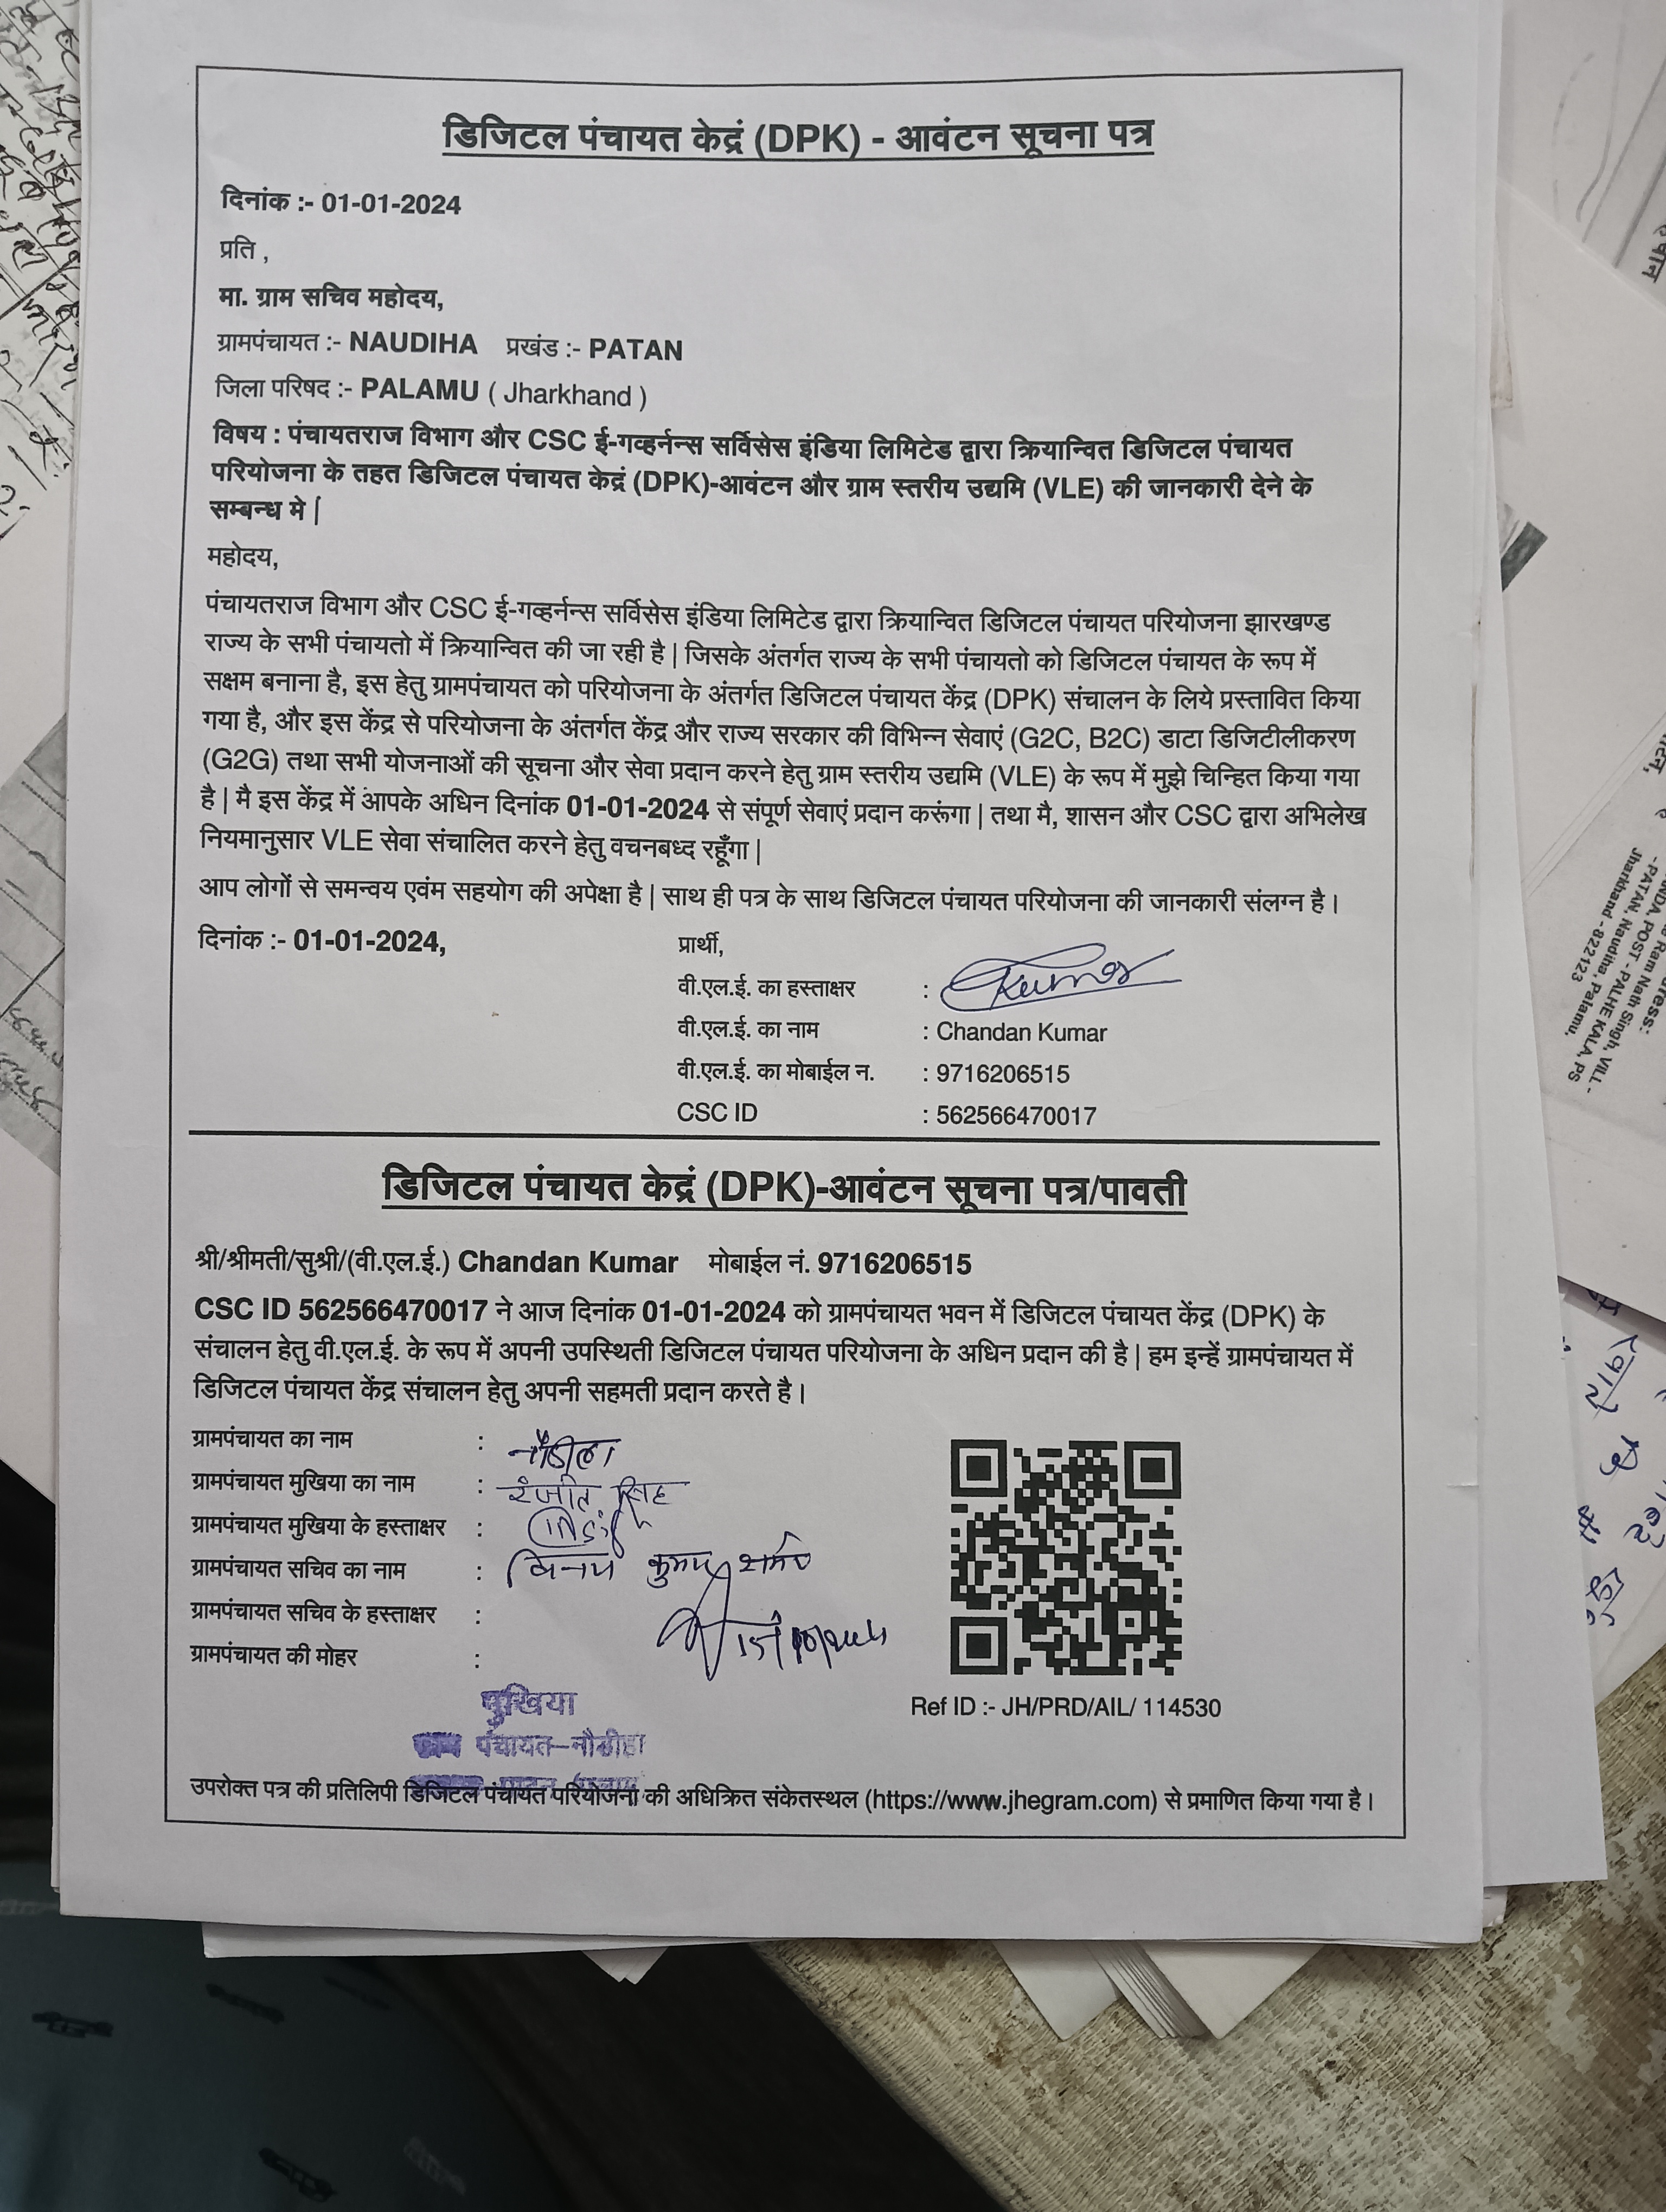 डिजिटल पंचायत केद्रं (DPK) - आवंटन सूचना पत्र
दिनांक :- 01-01-2024
प्रति ,
मा. ग्राम सचिव महोदय,
ग्रामपंचायत :- NAUDIHA प्रखंड :- PATAN
जिला परिषद :- PALAMU ( Jharkhand )
विषय : पंचायतराज विभाग और CSC ई-गव्हर्नन्स सर्विसेस इंडिया लिमिटेड द्वारा क्रियान्वित डिजिटल पंचायत
परियोजना के तहत डिजिटल पंचायत केद्रं (DPK)-आवंटन और ग्राम स्तरीय उद्यमि (VLE) की जानकारी देने के
सम्बन्ध मे |
महोदय,
पंचायतराज विभाग और CSC ई-गव्हर्नन्स सर्विसेस इंडिया लिमिटेड द्वारा क्रियान्वित डिजिटल पंचायत परियोजना झारखण्ड
राज्य के सभी पंचायतो में क्रियान्वित की जा रही है | जिसके अंतर्गत राज्य के सभी पंचायतो को डिजिटल पंचायत के रूप में
सक्षम बनाना है, इस हेतु ग्रामपंचायत को परियोजना के अंतर्गत डिजिटल पंचायत केंद्र (DPK) संचालन के लिये प्रस्तावित किया
गया है, और इस केंद्र से परियोजना के अंतर्गत केंद्र और राज्य सरकार की विभिन्न सेवाएं (G2C, B2C) डाटा डिजिटीलीकरण
(G2G) तथा सभी योजनाओं की सूचना और सेवा प्रदान करने हेतु ग्राम स्तरीय उद्यमि (VLE) के रूप में मुझे चिन्हित किया गया
है | मै इस केंद्र में आपके अधिन दिनांक 01-01-2024 से संपूर्ण सेवाएं प्रदान करूंगा | तथा मै, शासन और CSC द्वारा अभिलेख
नियमानुसार VLE सेवा संचालित करने हेतु वचनबध्द रहूँगा |
आप लोगों से समन्वय एवंम सहयोग की अपेक्षा है | साथ ही पत्र के साथ डिजिटल पंचायत परियोजना की जानकारी संलग्न है।
दिनांक :- 01-01-2024,
प्रार्थी,
वी.एल.ई. का हस्ताक्षर : Kumar
वी.एल.ई. का नाम : Chandan Kumar
वी.एल.ई. का मोबाईल न. : 9716206515
CSC ID : 562566470017
डिजिटल पंचायत केद्रं (DPK)-आवंटन सूचना पत्र/पावती
श्री/श्रीमती/सुश्री/(वी.एल.ई.) Chandan Kumar मोबाईल नं. 9716206515
CSC ID 562566470017 ने आज दिनांक 01-01-2024 को ग्रामपंचायत भवन में डिजिटल पंचायत केंद्र (DPK) के
संचालन हेतु वी.एल.ई. के रूप में अपनी उपस्थिती डिजिटल पंचायत परियोजना के अधिन प्रदान की है | हम इन्हें ग्रामपंचायत में
डिजिटल पंचायत केंद्र संचालन हेतु अपनी सहमती प्रदान करते है।
ग्रामपंचायत का नाम : नौडीहा
ग्रामपंचायत मुखिया का नाम : रंजीत सिंह
ग्रामपंचायत मुखिया के हस्ताक्षर :
ग्रामपंचायत सचिव का नाम : विनय कुमार शर्मा
ग्रामपंचायत सचिव के हस्ताक्षर :
ग्रामपंचायत की मोहर :
मुखिया
पंचायत-नौडीहा
Ref ID :- JH/PRD/AIL/ 114530
उपरोक्त पत्र की प्रतिलिपी डिजिटल पंचायत परियोजना की अधिक्रित संकेतस्थल (https://www.jhegram.com) से प्रमाणित किया गया है।
Ram Nath Singh, VILL -
POST - PALHE KALA, PS
- PATAN, Naudiha, Palamu,
Jharkhand - 822123